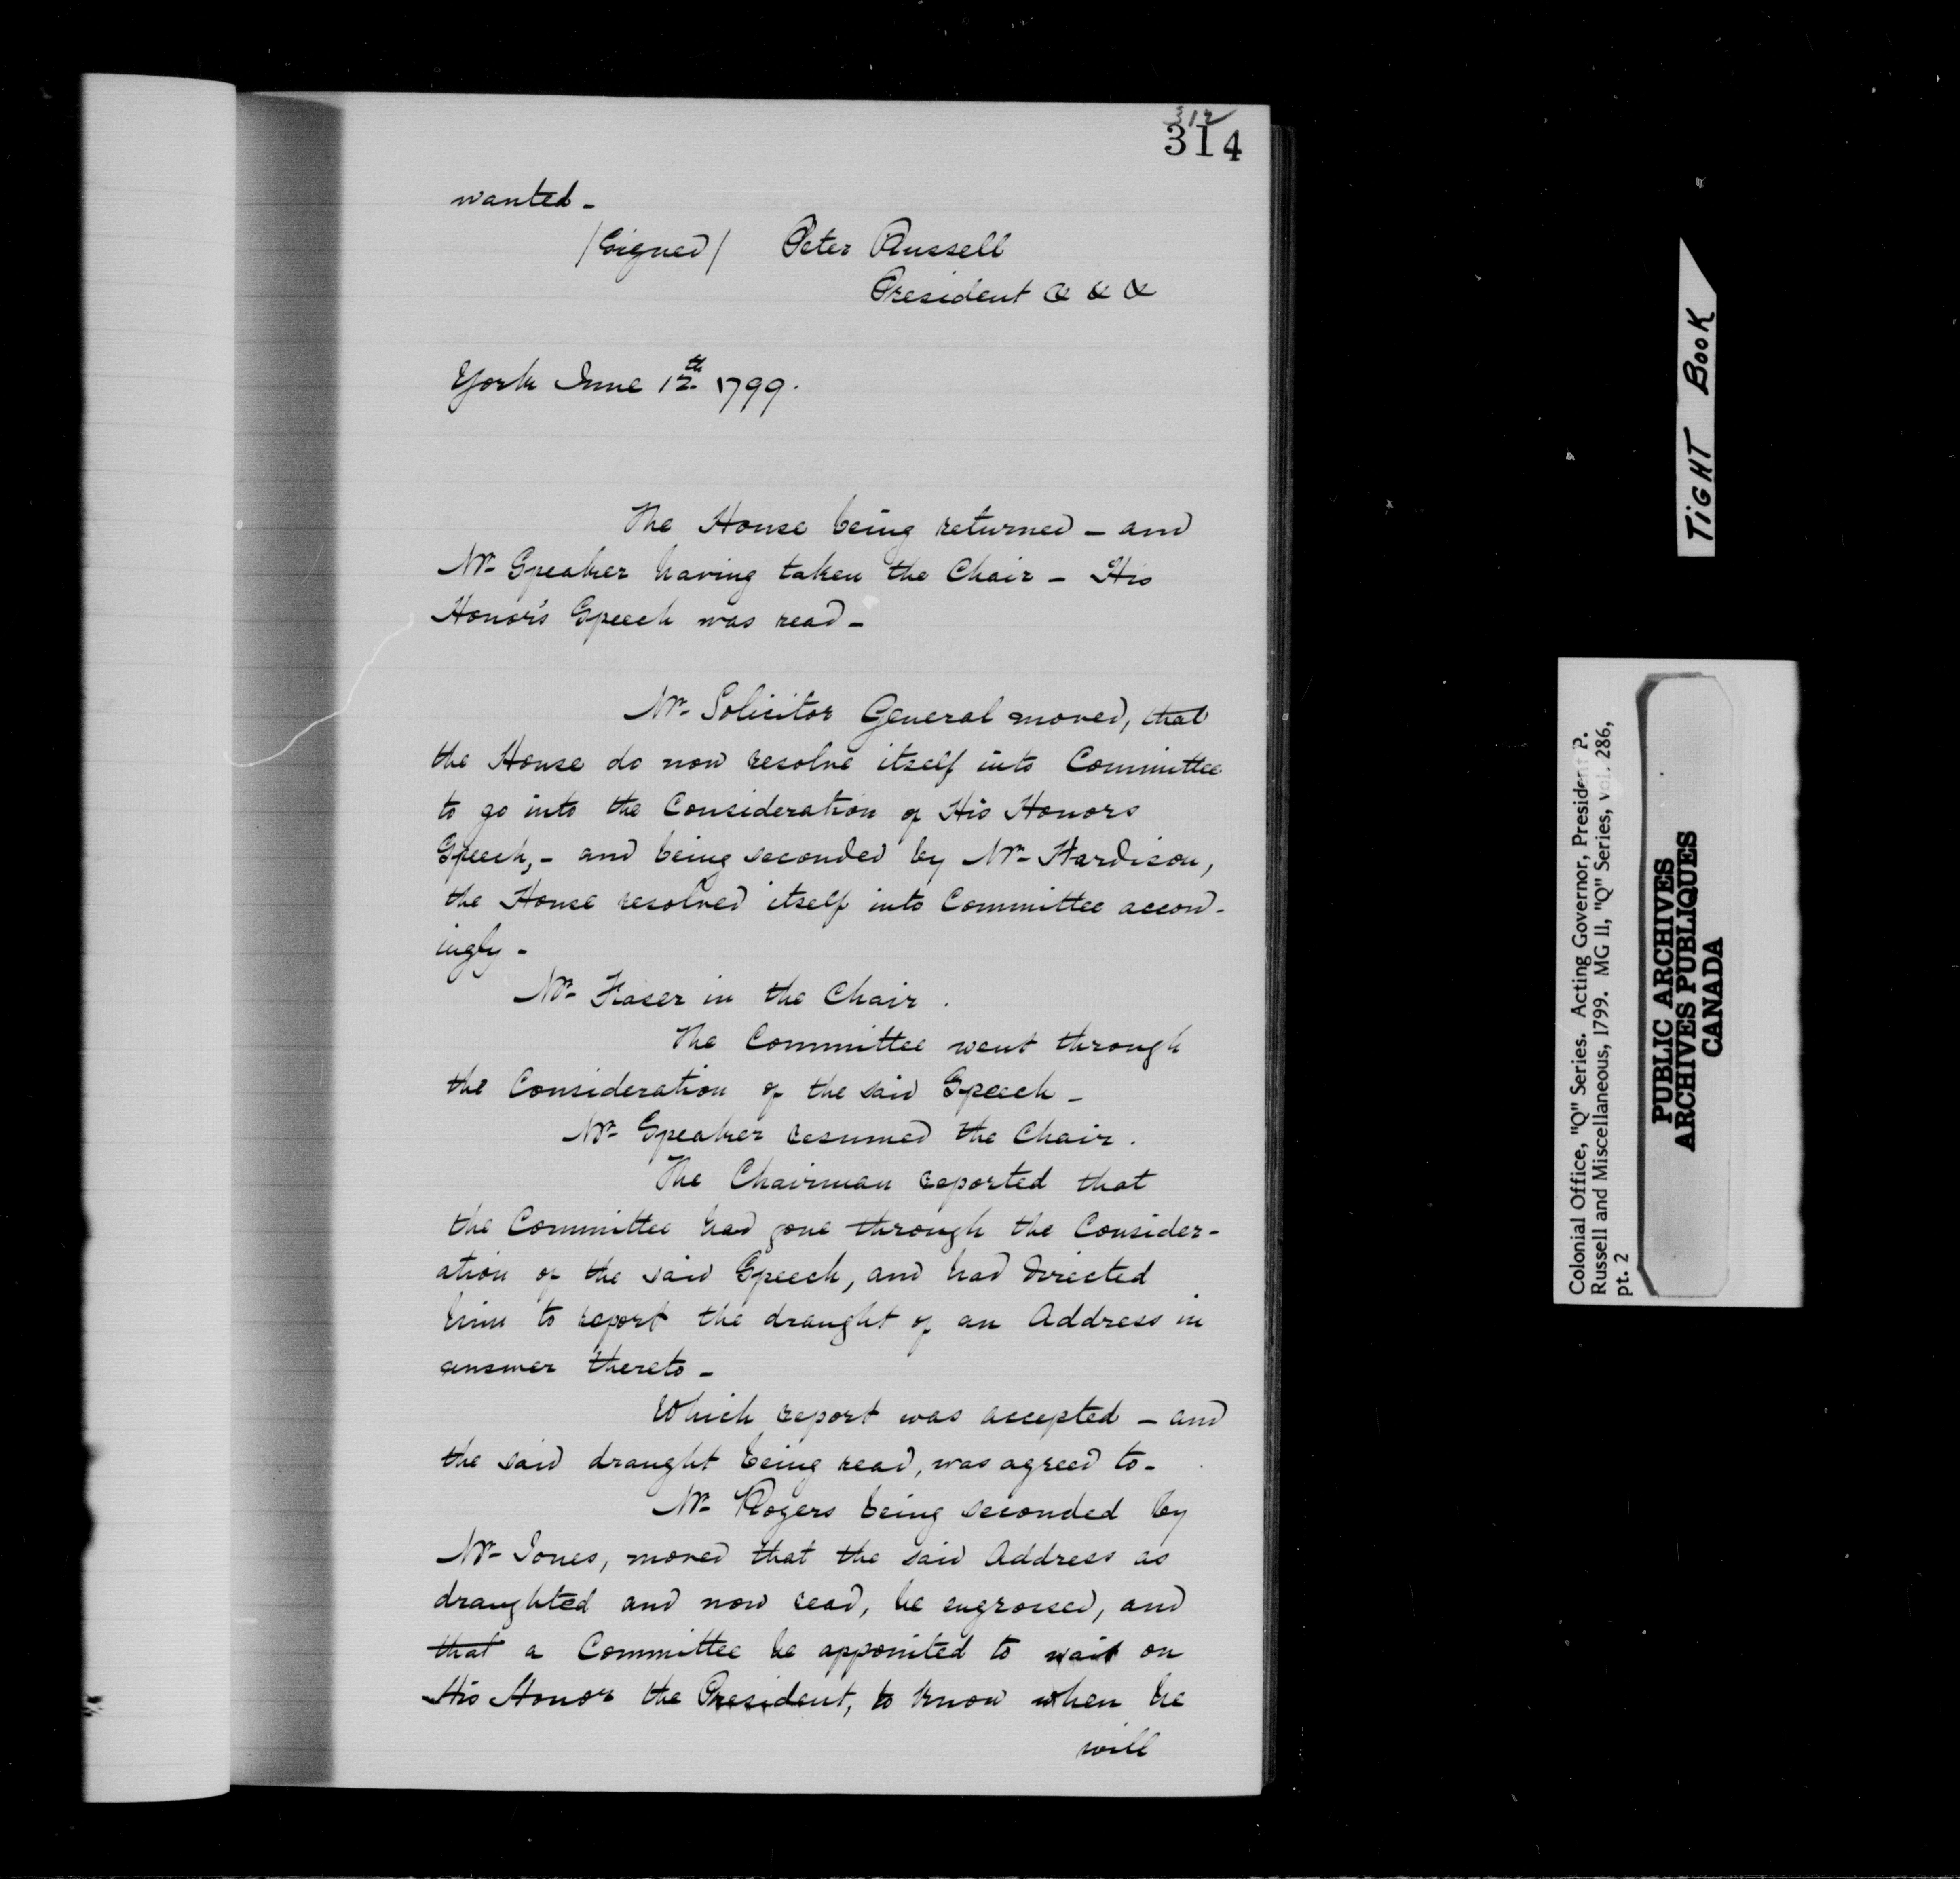 312
314
wanted -
/Signed/ Peter Russell
President & & &
York June 12th 1799.
The House being returned - and
Mr Speaker having taken the Chair - His
Honor's Speech was read -
Mr Solicitor General moved, that
the House do now resolve itself into Committee
to go into the Consideration of His Honors
Speech, - and being seconded by Mr Hardison,
the House resolved itself into Committee accord-
ingly -
Mr Fraser in the Chair.
The Committee went through
the Consideration of the said Speech -
Mr Speaker resumed the Chair.
The Chairman reported that
the Committee had gone through the Consider-
ation of the said Speech, and had directed
him to report the draught of an Address in
answer thereto -
Which report was accepted - and
the said draught being read, was agreed to -
Mr Rogers being seconded by
Mr Jones, moved that the said Address as
draughted and now read, be engrossed, and
that a Committee be appointed to wait on
His Honor the President, to know when he
will
TIGHT BOOK
Colonial Office, "Q" Series. Acting Governor, President P.
Russell and Miscellaneous, 1799. MG 11, "Q" Series, vol. 286,
pt. 2
PUBLIC ARCHIVES
ARCHIVES PUBLIQUES
CANADA